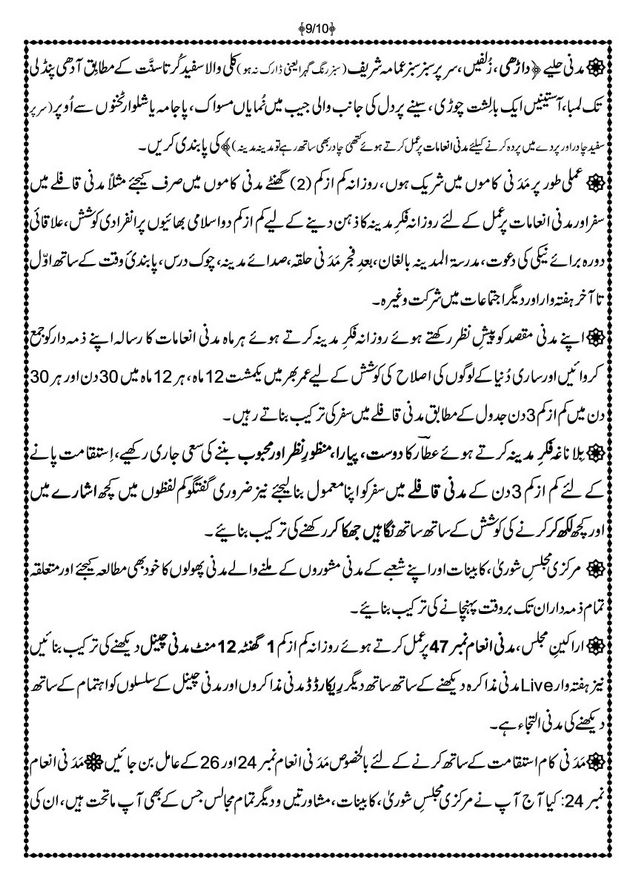 ﴿9/10﴾
مدنی حلیے ﴿داڑھی، زُلفیں، سر پر سبز سبز عمامہ شریف (سبز رنگ گہرا یعنی ڈارک نہ ہو) کلی والا سفید کُرتا سنَّت کے مطابِق آدھی پنڈلی
تک لمبا، آستینیں ایک بالِشت چوڑی، سینے پر دل کی جانب والی جیب میں نُمایاں مسواک، پاجامہ یا شلوار ٹخنوں سے اُوپر (سر پر
سفید چادر اور پردے میں پردہ کرنے کیلئے مدنی انعامات پر عمل کرتے ہوئے کتھئی چادر بھی ساتھ رہے تو مدینہ مدینہ)﴾ کی پابندی کریں۔
عملی طور پر مَدَنی کاموں میں شریک ہوں، روزانہ کم از کم (2) گھنٹے مدنی کاموں میں صرف کیجئے مثلاً مدنی قافلے میں
سفر اور مدنی انعامات پر عمل کے لئے روزانہ فکرِ مدینہ کا ذہن دینے کے لیے کم از کم دو اسلامی بھائیوں پر انفرادی کوشش، علاقائی
دورہ برائے نیکی کی دعوت، مدرسۃ المدینہ بالغان، بعدِ فجر مَدَنی حلقہ، صدائے مدینہ، چوک درس، پابندئ وقت کے ساتھ اوّل
تا آخر ہفتہ وار اور دیگر اجتماعات میں شرکت وغیرہ۔
اپنے مدنی مقصد کو پیشِ نظر رکھتے ہوئے روزانہ فکرِ مدینہ کرتے ہوئے ہر ماہ مدنی انعامات کا رسالہ اپنے ذمہ دار کو جمع
کروائیں اور ساری دُنیا کے لوگوں کی اصلاح کی کوشش کے لیے عمر بھر میں یکمشت 12 ماہ، ہر 12 ماہ میں 30 دن اور ہر 30
دن میں کم از کم 3 دن جدول کے مطابق مدنی قافلے میں سفر کی ترکیب بناتے رہیں۔
بلا ناغہ فکرِ مدینہ کرتے ہوئے عطّار کا دوست، پیارا، منظورِ نظر اور محبوب بننے کی سعی جاری رکھیے، اِستقامت پانے
کے لئے کم از کم 3 دن کے مدنی قافلے میں سفر کو اپنا معمول بنا لیجئے نیز ضروری گفتگو کم لفظوں میں کچھ اشارے میں
اور کچھ لکھ کر کرنے کی کوشش کے ساتھ ساتھ نگاہیں جھکا کر رکھنے کی ترکیب بنائیے۔
مرکزی مجلسِ شوریٰ، کابینات اور اپنے شعبے کے مدنی مشوروں کے ملنے والے مدنی پھولوں کا خود بھی مطالعہ کیجئے اور متعلقہ
تمام ذمہ داران تک بروقت پہنچانے کی ترکیب بنائیے۔
اراکینِ مجلس، مدنی انعام نمبر 47 پر عمل کرتے ہوئے روزانہ کم از کم 1 گھنٹہ 12 منٹ مدنی چینل دیکھنے کی ترکیب بنائیں
نیز ہفتہ وار Live مدنی مذاکرہ دیکھنے کے ساتھ ساتھ دیگر ریکارڈڈ مدنی مذاکروں اور مدنی چینل کے سلسلوں کو اہتمام کے ساتھ
دیکھنے کی مدنی التجاء ہے۔
مَدَنی کام استقامت کے ساتھ کرنے کے لئے بالخصوص مَدَنی انعام نمبر 24 اور 26 کے عامل بن جائیں مَدَنی انعام
نمبر 24: کیا آج آپ نے مرکزی مجلسِ شوریٰ، کابینات، مشاورتیں و دیگر تمام مجالس جس کے بھی آپ ماتحت ہیں، ان کی